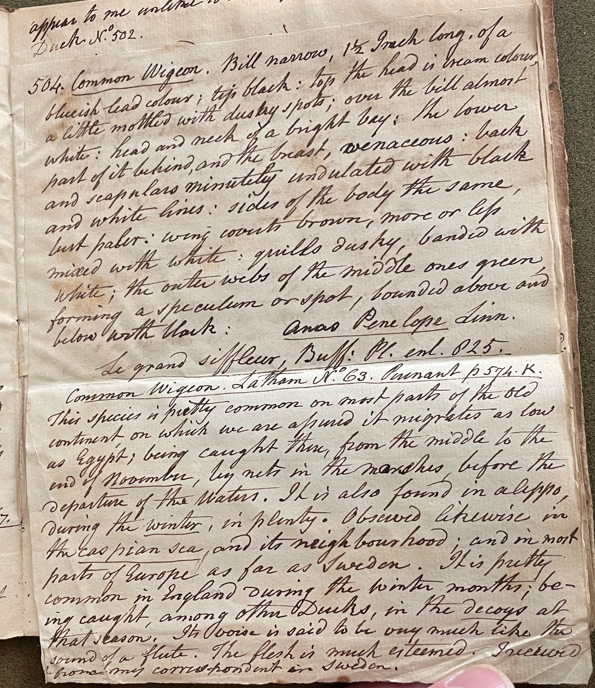 appear to me
Duck. No. 502.
504. Common Wigeon. Bill narrow, 1½ Inch long. of a
blueish lead colour; top black: top the head is cream colour,
a little mottled with dusky spots; over the bill almost
white: head and neck of a bright bay: the lower
part of it behind, and the breast, venaceous: back
and scapulars minutely undulated with black
and white lines: sides of the body the same,
but paler: wing coverts brown, more or less
mixed with white: quills dusky, banded with
white; the outer webs of the middle ones green,
forming a speculum or spot, bounded above and
below with black: Anas Penelope Linn.
Le grand siffleur, Buff: Pl. enl. 825.
Common Wigeon. Latham No. 63. Pennant p 574. K.
This species is pretty common on most parts of the old
continent on which we are assured it migrates as low
as Egypt; being caught there, from the middle to the
end of November, by nets in the marshes, before the
departure of the Waters. It is also found in aleppo,
during the winter, in plenty. Observed likewise in
the caspian sea, and its neighbourhood; and in most
parts of Europe as far as Sweden. It is pretty
common in England during the winter months; be-
ing caught, among other Ducks, in the decoys at
that season. Its voise is said to be very much like the
sound of a flute. The flesh is much esteemed. I received
from mes correspondent in Sweden.